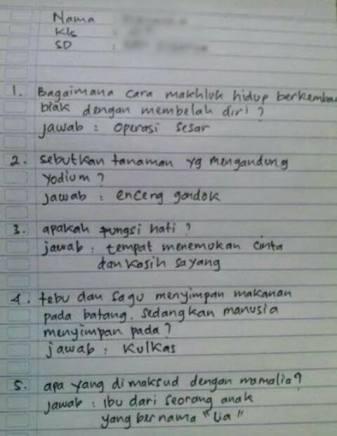 Nama :
Kls :
SD :
1. Bagaimana cara makhluk hidup berkemban
biak dengan membelah diri ?
jawab : operasi sesar
2. sebutkan tanaman yg mengandung
yodium ?
jawab : enceng gondok
3. apakah fungsi hati ?
jawab : tempat menemukan cinta
dan kasih sayang
4. tebu dan sagu menyimpan makanan
pada batang. sedangkan manusia
menyimpan pada ?
jawab : kulkas
5. apa yang dimaksud dengan mamalia ?
jawab : ibu dari seorang anak
yang bernama "Lia"